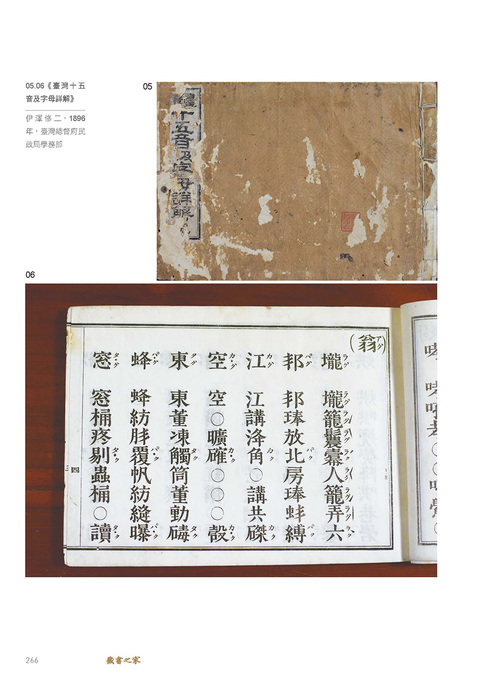 05.06《臺灣十五
音及字母詳解》
伊澤修二，1896
年，臺灣總督府民
政局學務部
05
十五音及字母詳解
06
(翁)
壠 壠籠鬞㝫人籠弄六
邦 邦琫放北房琫蚌縛
江 江講洚角○講共磔
空 空○曠確○○○㱿
東 東董凍觸筒董動𥕢
蜂 蜂紡肨覆帆紡縫曝
窓 窓桶疼剔蟲桶○讀
四
266
藏書之家